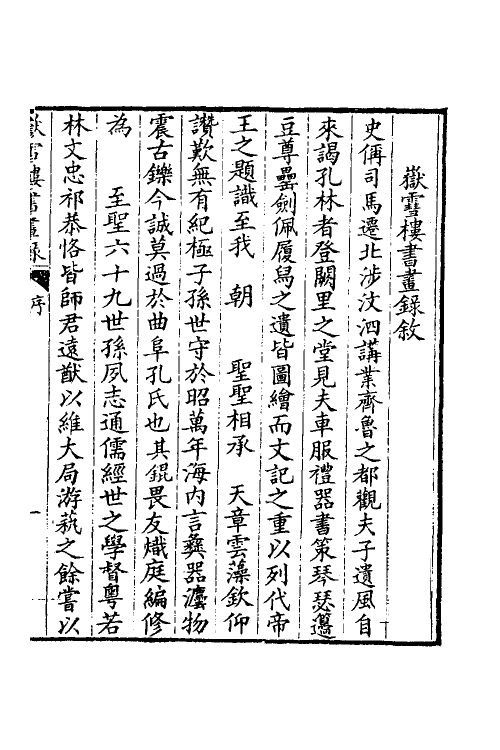 嶽雪樓書畫錄敘
史偁司馬遷北涉汶泗講業齊魯之都觀夫子遺風自
來謁孔林者登闕里之堂見夫車服禮器書策琴瑟籩
豆尊罍劍佩履舄之遺皆圖繪而文記之重以列代帝
王之題識至我 朝 聖聖相承 天章雲藻欽仰
讚歎無有紀極子孫世守於昭萬年海内言彝器瀍物
震古鑠今誠莫過於曲阜孔氏也其錕畏友熾庭編修
為 至聖六十九世孫夙志通儒經世之學督粵若
林文忠祁恭恪皆師君遠猷以維大局游藝之餘嘗以
嶽雪樓書畫錄 序 一